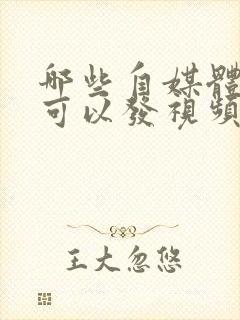 哪些自媒體
可以發視頻
王大忽悠